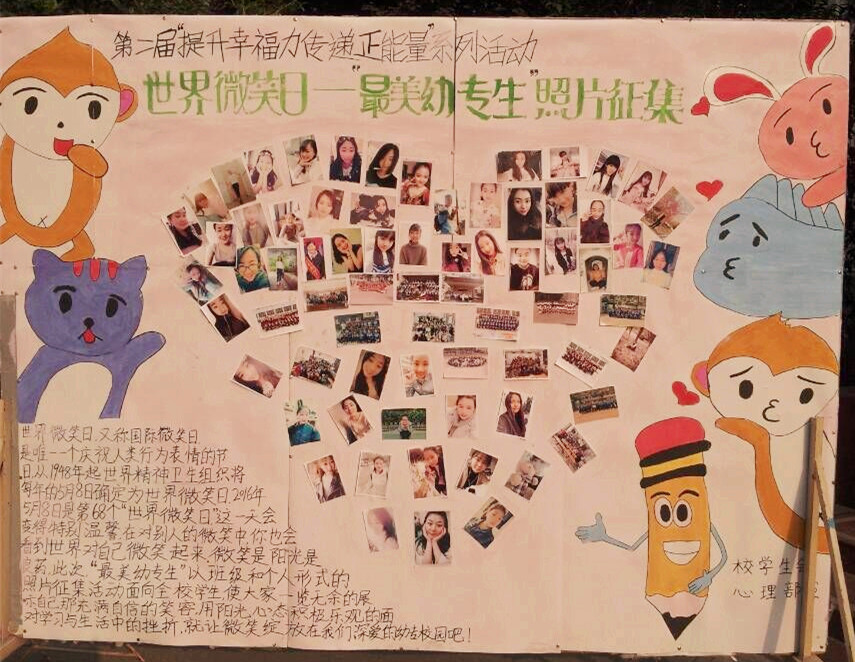 第二届“提升幸福力传递正能量”系列活动
世界微笑日—“最美幼专生”照片征集
世界微笑日,又称国际微笑日
是唯一一个庆祝人类行为表情的节
日,从1948年起世界精神卫生组织将
每年的5月8日确定为世界微笑日,2016年
5月8日是第68个“世界微笑日”这一天会
变得特别温馨,在对别人的微笑中你也会
看到世界对自己微笑起来,微笑是阳光是
此次“最美幼专生”以班级和个人形式的
照片征集活动面向全校学生使大家一览无余的展
示自己那充满自信的笑容,用阳光心态积极乐观的面
对学习与生活中的挫折,就让微笑绽放在我们深爱的幼专校园吧!
校学生会
心理部